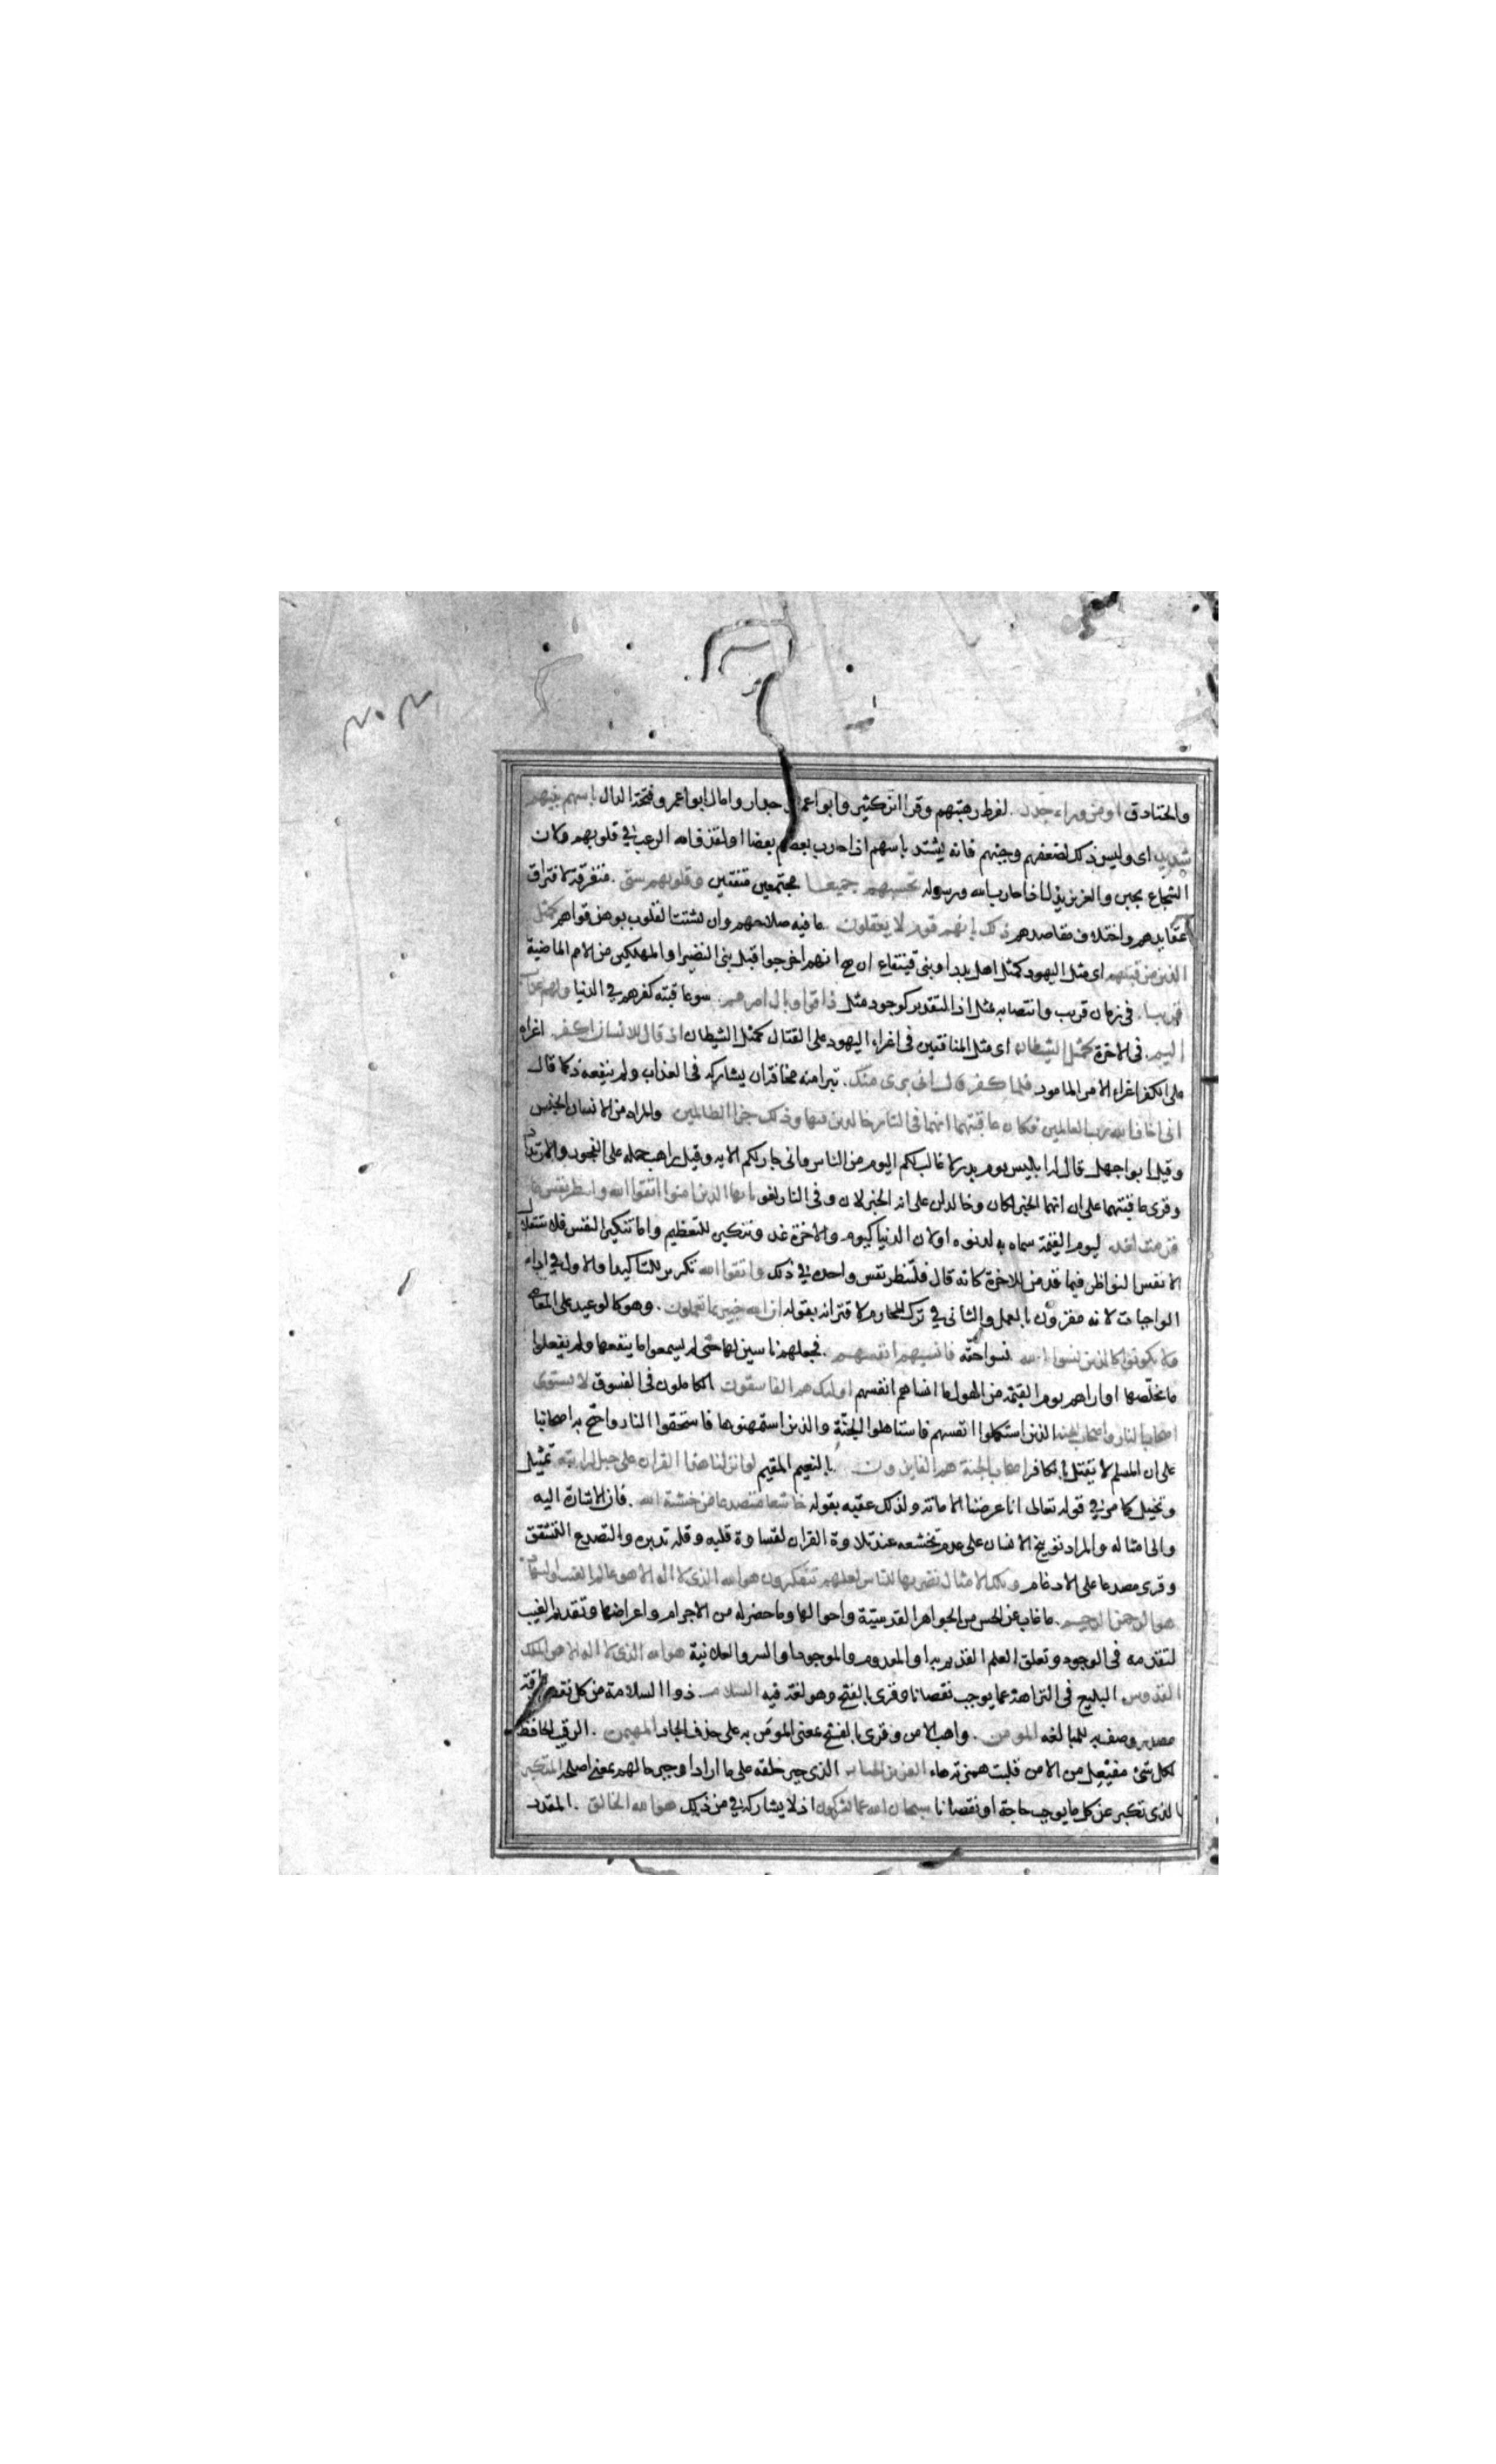 والخنادق او من وراء جدر لفرط رهبتهم وقرا ابن كثير وابوا عمرو جدار وامال ابوا عمرو فتحة الدال باسهم بينهم
شديد اى وليس ذلك لضعفهم وجبنهم فانه يشتد باسهم اذا حارب بعضهم بعضا اولقذف الله الرعب في قلوبهم ولان
الشجاع يجبن والعزيز يذل اذا حارب الله ورسوله تحسبهم جميعا مجتمعين متفقين وقلوبهم شتى متفرقة لافتراق
عقايدهم واختلاف مقاصدهم ذلك بانهم قوم لا يعقلون ما فيه صلاحهم وان تشتت القلوب يوهن قواهم كمثل
الذين من قبلهم اى مثل اليهود كمثل اهل بدر او بنى قينقاع ان صح انهم اخرجوا قبل بنى النضير او المهلكين من الامم الماضية
قريبا فى زمان قريب وانتصابه بمثل اذ التقدير كوجود مثل ذاقوا وبال امرهم سوء عاقبة كفرهم في الدنيا ولهم عذاب
اليم فى الاخرة كمثل الشيطان اى مثل المنافقين فى اغراء اليهود على القتال كمثل الشيطان اذ قال للانسان اكفر اغراه
على الكفر اغراء الامر المامور فلما كفر قال انى برى منك تبرا منه مخافة ان يشاركه فى العذاب ولم ينفعه ذلك كما قال
انى اخاف الله رب العالمين فكان عاقبتهما انهما فى النار خالدين فيها وذلك جزا الظالمين والمراد من الانسان الجنس
وقيل ابو اجهل قال له ابليس يوم بدر لا غالب لكم اليوم من الناس وانى جار لكم الايه وقيل راهب حمله على الفجور والارتداد
وقرى عاقبتهما على ان انهما الخبر لكان وخالدان على انه الخبر لان وفى النار لغو يا ايها الذين امنوا اتقوا الله ولتنظر نفس ما
قدمت لغد ليوم القيمة سماه به لدنوه اولان الدنيا كيوم والاخرة غد وتنكيره للتعظيم واما تنكير النفس فلاستقلال
الانفس النواظر فيما قدمن للاخرة كانه قال فلتنظر نفس واحدة في ذلك واتقوا الله تكرير للتاكيد او الاول في اداء
الواجبات لانه مقرون بالعمل والثانى في ترك المحارم لاقترانه بقوله ان الله خبير بما تعملون وهو كالوعيد على المعاصى
ولا تكونوا كالذين نسوا الله نسوا حقه فانسيهم انفسهم فجعلهم ناسين لها حتى لم يسمعوا ما ينفعها ولم يفعلوا
ما يخلصها او اراهم يوم القيمة من الهول ما انساهم انفسهم اوليك هم الفاسقون الكاملون فى الفسوق لا يستوى
اصحاب النار واصحاب الجنة الذين استكملوا انفسهم فاستاهلوا الجنة والذين استمهنوها فاستحقوا النار واحتج به اصحابنا
على ان المسلم لا يقتل بالكافر اصحاب الجنة هم الفايزون بالنعيم المقيم لو انزلنا هذا القران على جبل لرايته تمثيل
وتخييل كما مر في قوله تعالى انا عرضنا الامانة ولذلك عقبه بقوله خاشعا متصدعا من خشية الله فان الاشارة اليه
والى امثاله والمراد توبيخ الانسان على عدم تخشعه عند تلاوة القران لقساوة قلبه وقلة تدبره والتصدع التشقق
وقرى مصدعا على الادغام وتلك الامثال نضربها للناس لعلهم يتفكرون هو الله الذى لا اله الا هو عالم الغيب والشهادة
هو الرحمن الرحيم ما غاب عن الحس من الجواهر القدسية واحوالها وما حضر له من الاجرام واعراضها وتقديم الغيب
لتقدمه فى الوجود وتعلق العلم القديم به او المعدوم والموجود او السر والعلانية هو الله الذى لا اله الا هو الملك
القدوس البليغ فى النزاهة عما يوجب نقصانا وقرى بالفتح وهو لغة فيه السلام ذوا السلامة من كل نقص وافة
مصدر وصف به للمبالغه المومن واهب الامن وقرى بالفتح بمعنى المومن به على حذف الجار المهيمن الرقيب الحافظ
لكل شئ مفيعل من الامن قلبت همزته هاء العزيز الجبار الذى جبر خلقه على ما اراد او جبر حالهم بمعنى اصلحه المتكبر
الذى تكبر عن كل ما يوجب حاجة او نقصانا سبحان الله عما يشركون اذ لا يشاركه في من ذلك هو الله الخالق المقدر